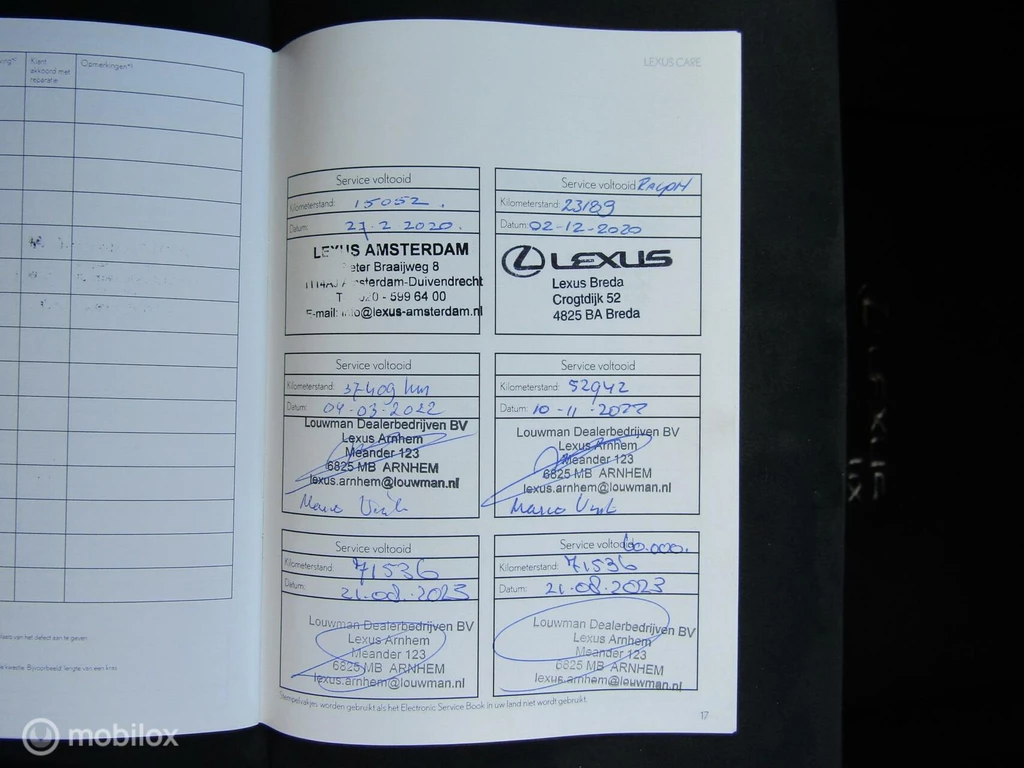 ving*)
Klant
akkoord met
reparatie
Opmerkingen*)
LEXUS CARE
Service voltooid
Kilometerstand: 15052.
Datum: 27.2 2020.
LEXUS AMSTERDAM
Pieter Braaijweg 8
Amsterdam-Duivendrecht
T 020 - 599 64 00
E-mail: info@lexus-amsterdam.nl
Service voltooid RALPH
Kilometerstand: 23189
Datum: 02-12-2020
LEXUS
Lexus Breda
Crogtdijk 52
4825 BA Breda
Service voltooid
Kilometerstand: 37409 km
Datum: 04-03-2022
Louwman Dealerbedrijven BV
Lexus Arnhem
Meander 123
6825 MB ARNHEM
lexus.arnhem@louwman.nl
Marco
Service voltooid
Kilometerstand: 52942
Datum: 10-11-2022
Louwman Dealerbedrijven BV
Lexus Arnhem
Meander 123
6825 MB ARNHEM
lexus.arnhem@louwman.nl
Marco
Service voltooid
Kilometerstand: 71536
Datum: 21.08.2023
Louwman Dealerbedrijven BV
Lexus Arnhem
Meander 123
6825 MB ARNHEM
lexus.arnhem@louwman.nl
Service voltooid 60.000.
Kilometerstand: 71536
Datum: 21.08.2023
Louwman Dealerbedrijven BV
Lexus Arnhem
Meander 123
6825 MB ARNHEM
lexus.arnhem@louwman.nl
plaats van het defect aan te geven
kwestie. Bijvoorbeeld: lengte van een kras
Stempelvakjes worden gebruikt als het Electronic Service Book in uw land niet wordt gebruikt.
17
mobilox